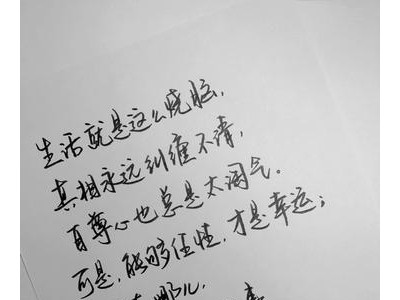 生活就是这么烧脑,
真相永远纠缠不清,
自尊心也总是太淘气。
可是,能够任性,才是幸运;
哪儿,